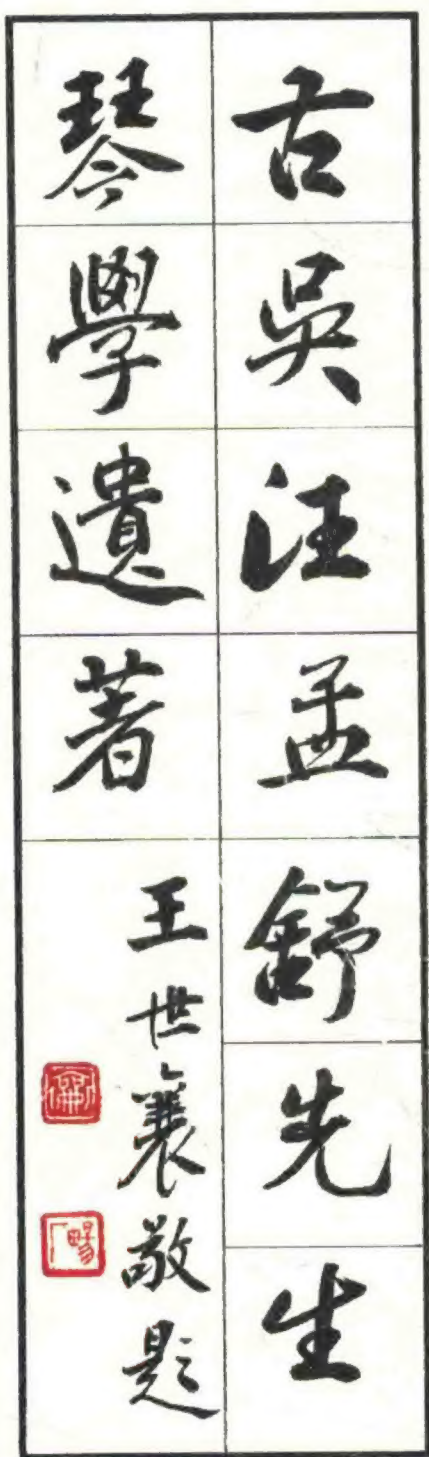 古吳汪孟舒先生
琴學遺著
王世襄敬題